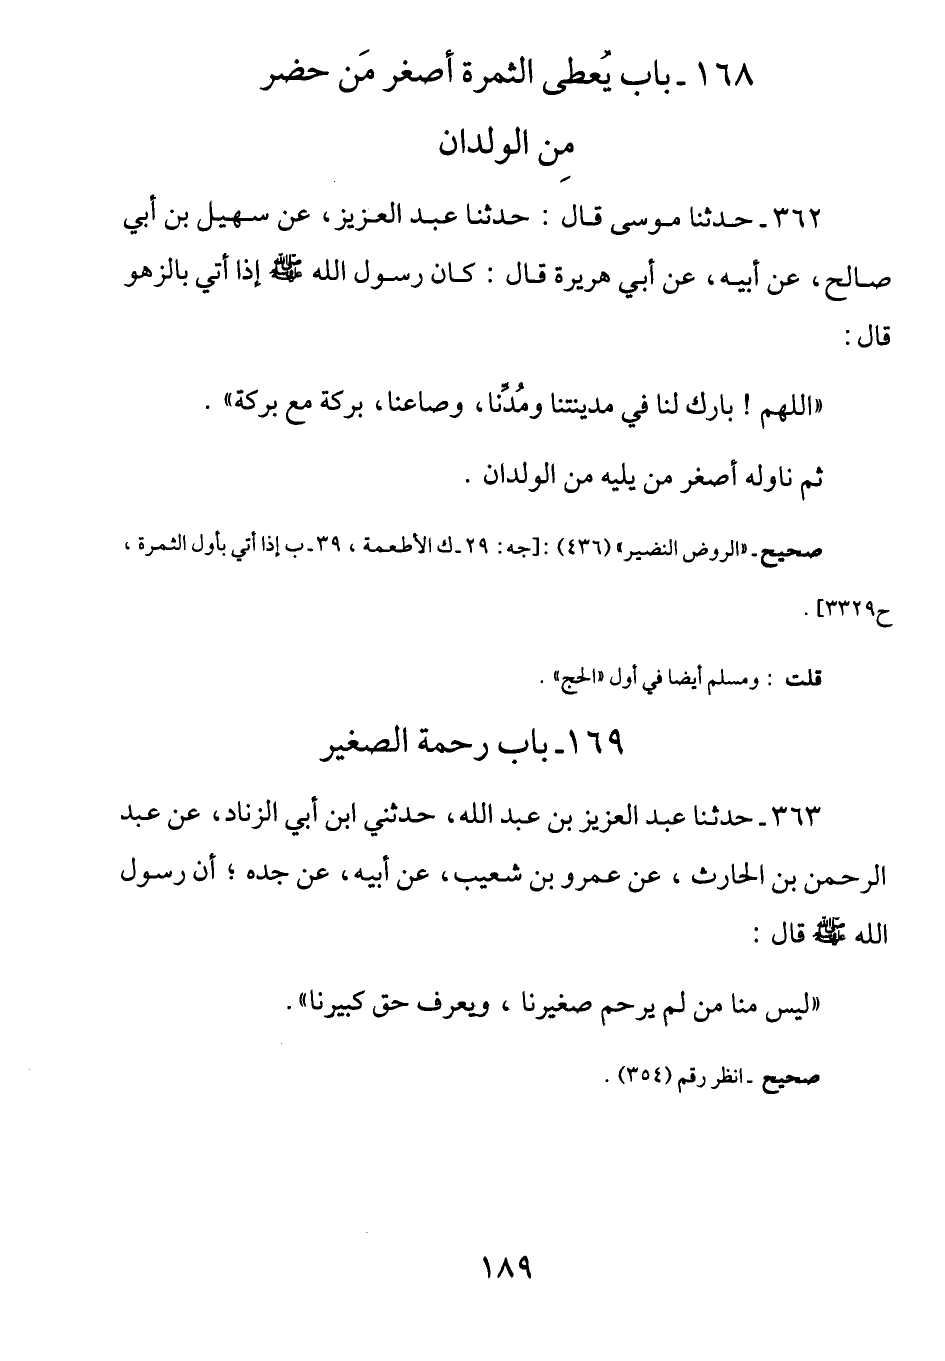 ١٦٨ ـ باب يُعطى الثمرة أصغر مَن حضر
مِن الولدان
٣٦٢ ـ حدثنا موسى قال : حدثنا عبد العزيز، عن سهيل بن أبي
صالح، عن أبيه، عن أبي هريرة قال : كان رسول الله ﷺ إذا أتي بالزهو
قال :
«اللهم ! بارك لنا في مدينتنا ومُدِّنا، وصاعنا، بركة مع بركة» .
ثم ناوله أصغر من يليه من الولدان .
صحيح ـ «الروض النضير» (٤٣٦) : [جه : ٢٩ ـ ك الأطعمة ، ٣٩ ـ ب إذا أتي بأول الثمرة ،
ح٣٣٢٩] .
قلت : ومسلم أيضا في أول «الحج» .
١٦٩ ـ باب رحمة الصغير
٣٦٣ ـ حدثنا عبد العزيز بن عبد الله، حدثني ابن أبي الزناد، عن عبد
الرحمن بن الحارث ، عن عمرو بن شعيب، عن أبيه، عن جده ؛ أن رسول
الله ﷺ قال :
«ليس منا من لم يرحم صغيرنا ، ويعرف حق كبيرنا» .
صحيح ـ انظر رقم (٣٥٤) .
١٨٩